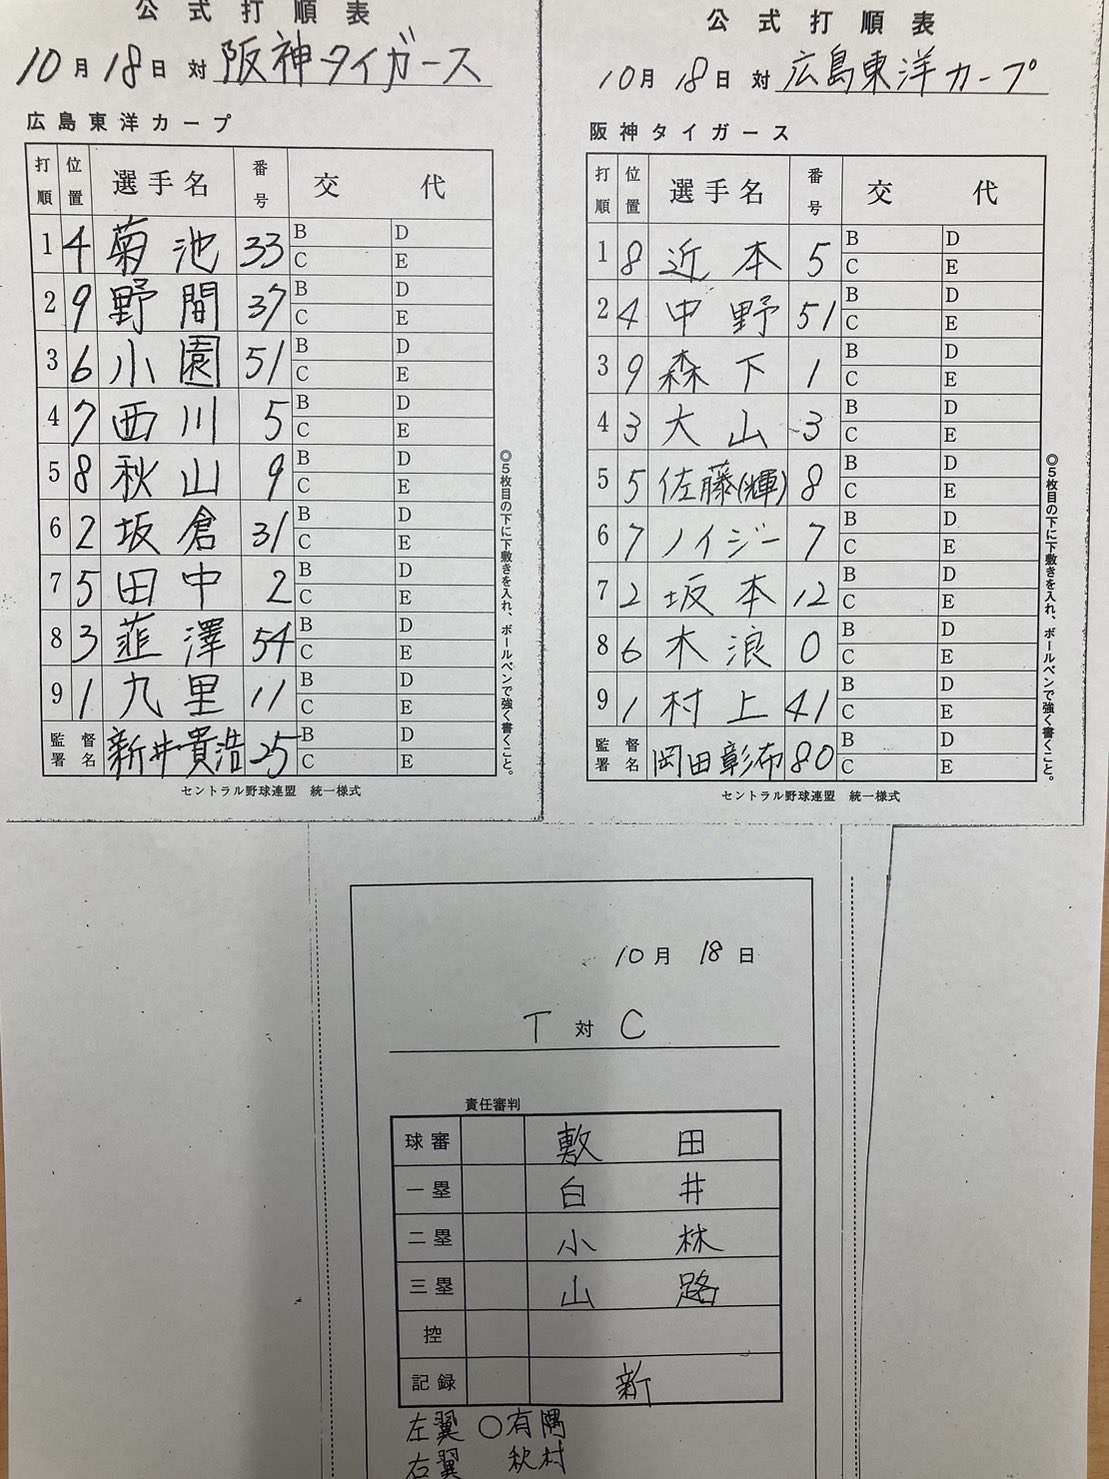 公式打順表
10月18日 対 阪神タイガース
広島東洋カープ
打順 位置 選手名 番号 交代
1 4 菊池 33 B D C E
2 9 野間 37 B D C E
3 6 小園 51 B D C E
4 7 西川 5 B D C E
5 8 秋山 9 B D C E
6 2 坂倉 31 B D C E
7 5 田中 2 B D C E
8 3 韮澤 54 B D C E
9 1 九里 11 B D C E
監督署名 新井貴浩 25 B D C E
◎5枚目の下に下敷きを入れ、ボールペンで強く書くこと。
セントラル野球連盟 統一様式
公式打順表
10月18日 対 広島東洋カープ
阪神タイガース
打順 位置 選手名 番号 交代
1 8 近本 5 B D C E
2 4 中野 51 B D C E
3 9 森下 1 B D C E
4 3 大山 3 B D C E
5 5 佐藤(輝) 8 B D C E
6 7 ノイジー 7 B D C E
7 2 坂本 12 B D C E
8 6 木浪 0 B D C E
9 1 村上 41 B D C E
監督署名 岡田彰布 80 B D C E
◎5枚目の下に下敷きを入れ、ボールペンで強く書くこと。
セントラル野球連盟 統一様式
10月 18日
T 対 C
責任審判
球審 敷田
一塁 白井
二塁 小林
三塁 山路
控
記録 新
左翼 〇有隅
右翼 秋村